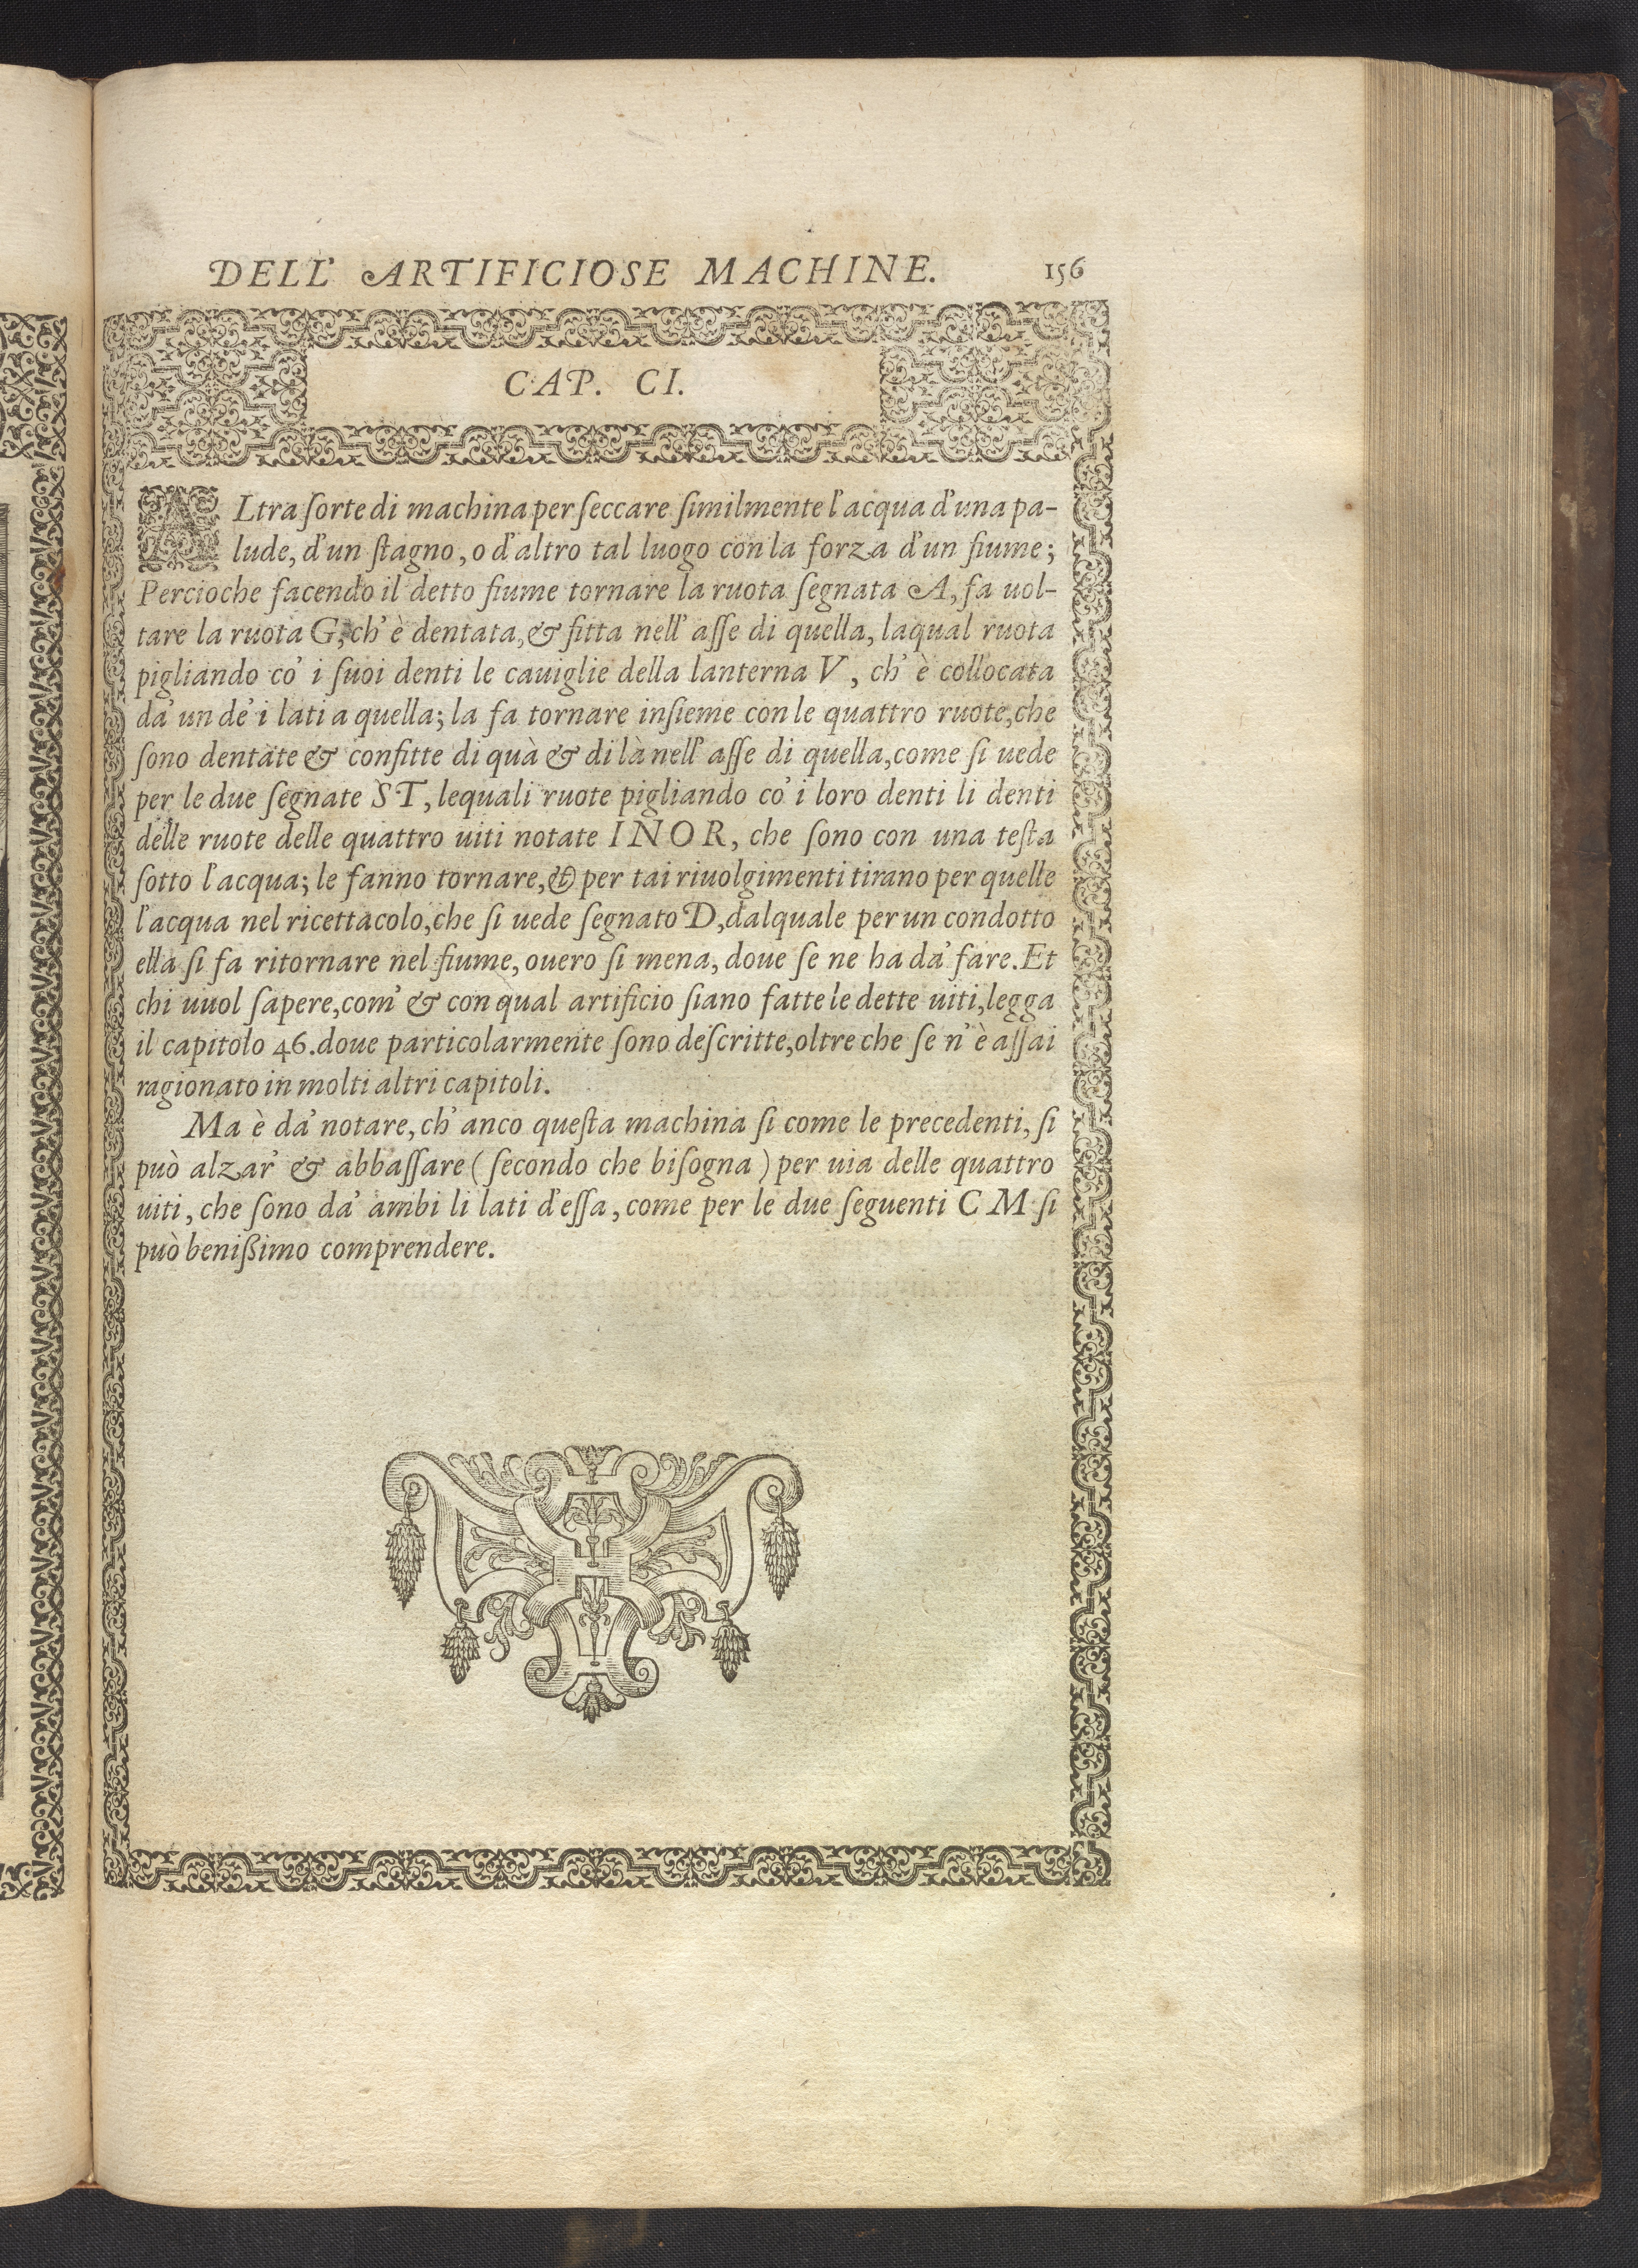 DELL' ARTIFICIOSE MACHINE. 156
CAP. CI.
ALtra ſorte di machina per ſeccare ſimilmente l'acqua d'una pa-
lude, d'un ſtagno, o d'altro tal luogo con la forza d'un fiume;
Percioche facendo il detto fiume tornare la ruota ſegnata A, fa uol-
tare la ruota G, ch' è dentata, & fitta nell' aſſe di quella, laqual ruota
pigliando co' i ſuoi denti le cauiglie della lanterna V, ch' è collocata
da' un de' i lati a quella; la fa tornare inſieme con le quattro ruote, che
ſono dentate & confitte di quà & di là nell' aſſe di quella, come ſi uede
per le due ſegnate S T, lequali ruote pigliando co' i loro denti li denti
delle ruote delle quattro uiti notate I N O R, che ſono con una teſta
ſotto l'acqua; le fanno tornare, & per tai riuolgimenti tirano per quelle
l'acqua nel ricettacolo, che ſi uede ſegnato D, dalquale per un condotto
ella ſi fa ritornare nel fiume, ouero ſi mena, doue ſe ne ha da' fare. Et
chi uuol ſapere, com' & con qual artificio ſiano fatte le dette uiti, legga
il capitolo 46. doue particolarmente ſono deſcritte, oltre che ſe n' è aſſai
ragionato in molti altri capitoli.
Ma è da' notare, ch' anco queſta machina ſi come le precedenti, ſi
può alzar' & abbaſſare ( ſecondo che biſogna ) per uia delle quattro
uiti, che ſono da' ambi li lati d'eſſa, come per le due ſeguenti C M ſi
può benißimo comprendere.